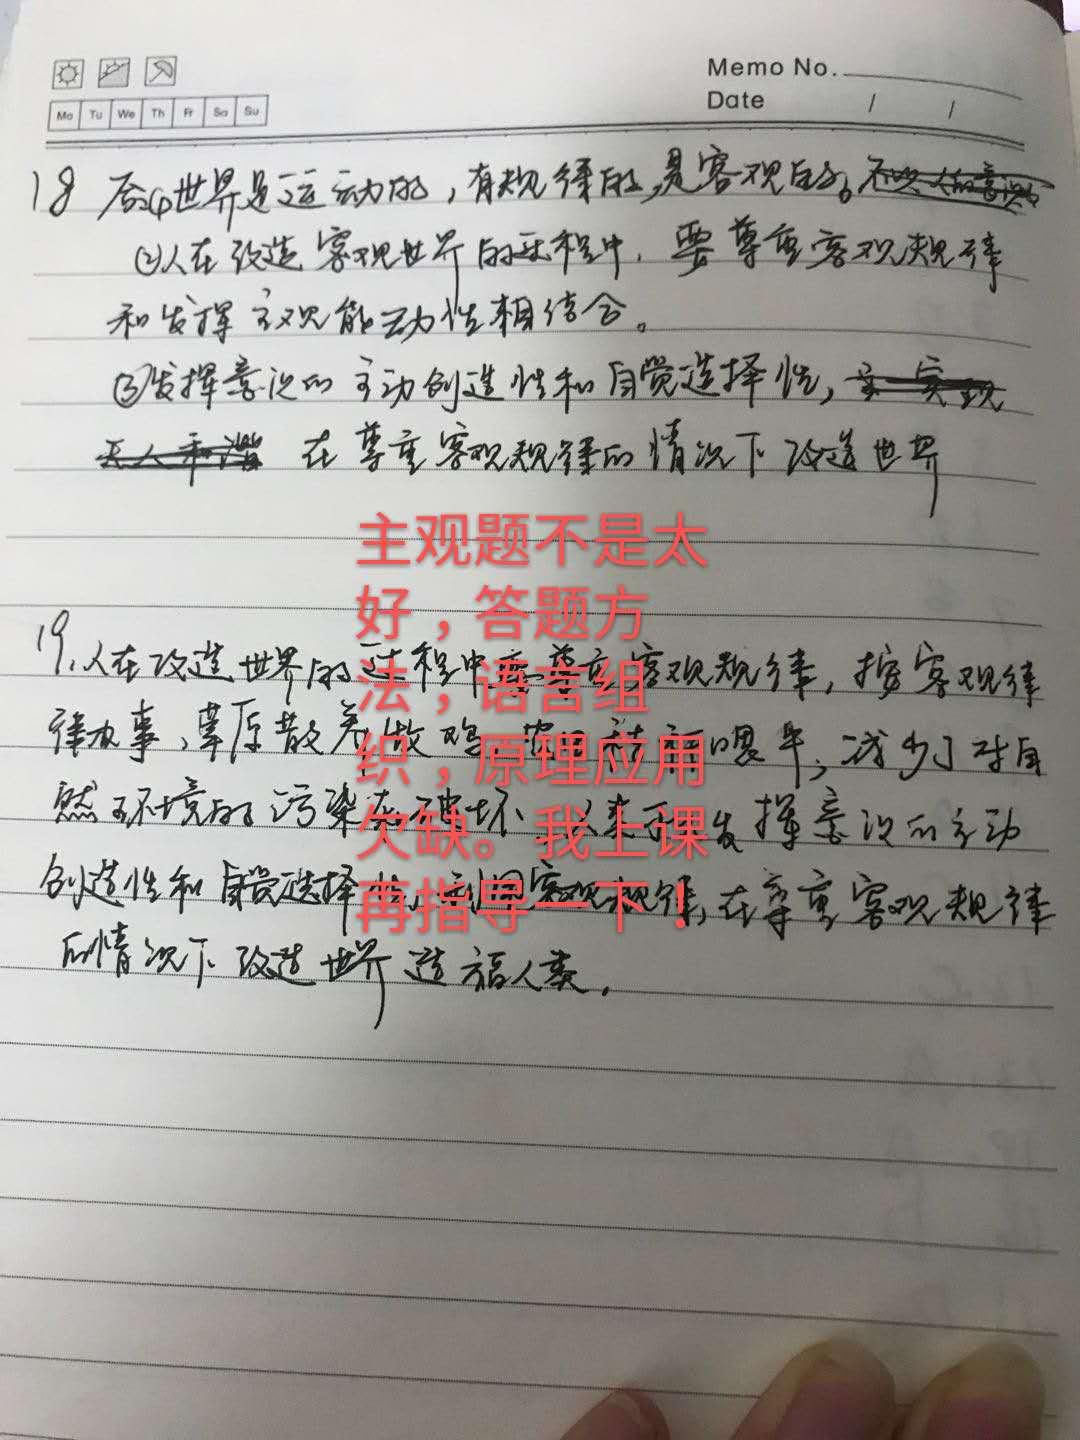 Memo No.
Date / /
Mo Tu We Th Fr Sa Su
18 答(1)世界是运动的,有规律的,是客观的。
(2)人在改造客观世界的过程中,要尊重客观规律
和发挥主观能动性相结合。
(3)发挥意识的主动创造性和自觉选择性,
在尊重客观规律的情况下改造世界
主观题不是太
好,答题方
法,语言组
织,原理应用
欠缺。我上课
再指导一下!
19.人在改造世界的过程中要尊重客观规律,按客观规律
律办事、草原散养牧鸡 减少了对自
然环境的污染和破坏 发挥意识的主动
创造性和自觉选择性,利用客观规律,在尊重客观规律
的情况下改造世界造福人类.